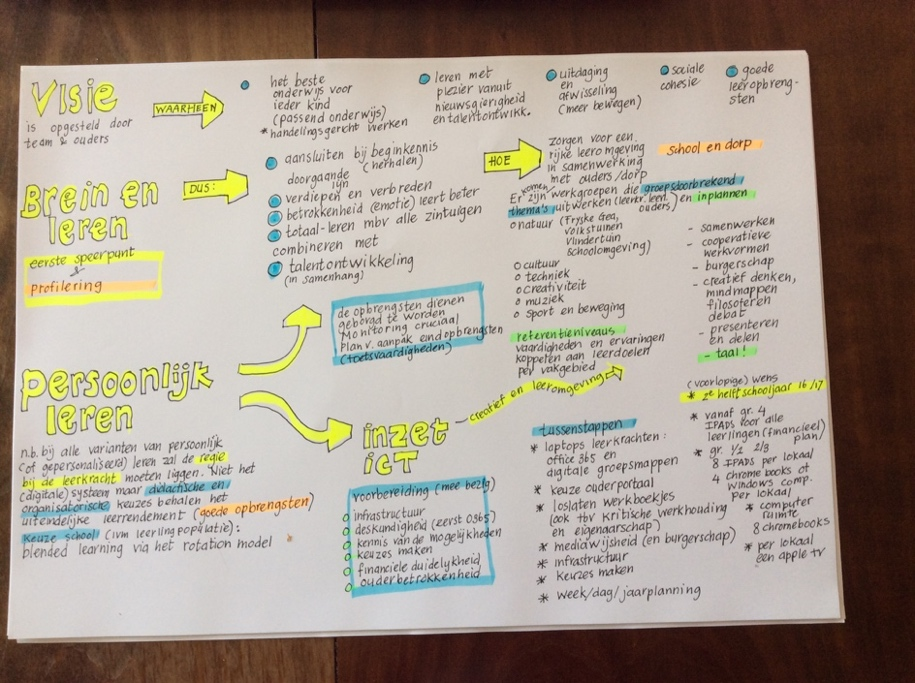 Visie
is opgesteld door
team & ouders
WAARHEEN
het beste
onderwijs voor
ieder kind
(passend onderwijs)
* handelingsgericht werken
leren met
plezier vanuit
nieuwsgierigheid
en talentontwikk.
uitdaging
en
afwisseling
(meer bewegen)
sociale
cohesie
goede
leeropbreng-
sten
Brein en
leren
eerste speerpunt
&
profilering
DUS:
aansluiten bij beginkennis
(herhalen)
doorgaande
lijn
verdiepen en verbreden
betrokkenheid (emotie) leert beter
totaal-leren mbv alle zintuigen
combineren met
talentontwikkeling
(in samenhang)
HOE
zorgen voor een
rijke leeromgeving
in samenwerking
met ouders/dorp
school en dorp
Er komen
zijn werkgroepen die groepsdoorbrekend
thema's uitwerken (leerkr. leerl. ouders) en inplannen
o natuur (Fryske Gea,
volkstuinen
Vlindertuin
Schoolomgeving)
o cultuur
o techniek
o creativiteit
o muziek
o sport en beweging
- samenwerken
- cooperatieve
werkvormen
- burgerschap
- creatief denken,
mindmappen
filosoferen
debat
- presenteren
en delen
- taal!
referentieniveaus
vaardigheden en ervaringen
koppelen aan leerdoelen
per vakgebied
de opbrengsten dienen
geborgd te worden
Monitoring cruciaal
Plan v. aanpak eindopbrengsten
(toetsvaardigheden)
persoonlijk
leren
n.b. bij alle varianten van persoonlijk
(of gepersonaliseerd) leren zal de regie
bij de leerkracht moeten liggen. Niet het
(digitale) systeem maar didactische en
organisatorische keuzes behalen het
uiteindelijke leerrendement (goede opbrengsten)
Keuze school (ivm leerlingpopulatie):
blended learning via het rotation model
inzet
ict
creatief en leeromgeving
voorbereiding (mee bezig)
o infrastructuur
o deskundigheid (eerst O365)
o kennis van de mogelijkheden
o keuzes maken
o financiele duidelijkheid
o ouderbetrokkenheid
tussenstappen
* laptops leerkrachten:
office 365 en
digitale groepsmappen
* keuze ouderportaal
* loslaten werkboekjes
(ook tbv kritische werkhouding
en eigenaarschap)
* mediawijsheid (en burgerschap)
* infrastructuur
* keuzes maken
* week/dag/jaarplanning
(voorlopige) wens
* 2e helft schooljaar 16/17
* vanaf gr. 4
IPADS voor alle
leerlingen (financieel
plan)
* gr. 1/2 2/3
8 IPADS per lokaal
4 Chrome books of
windows comp.
per lokaal
* computer
ruimte
8 chromebooks
* per lokaal
een apple tv